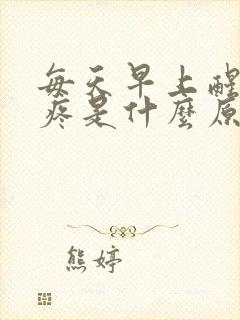 每天早上醒
疼是什麼原
熊婷